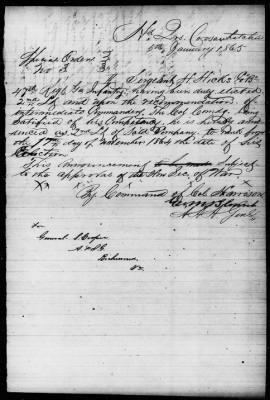 Hd Qrs
5th January 1865
Special Orders
No 3
I. Sergeant H. Hicks Co
47th Regt Ga Infantry, having been duly elected
2nd Lt and upon the recommendation of
intermediate Commander. The Col Comdg being
satisfied of his Competency, he is hereby
as 2nd Lt of said Company, to rank from
the day of November 1864 the date of his
Election.
This announcement subject
to the approval of the Hon Sec. of War.
By Command of Col Harrison
A A A Genl
To
General S. Cooper
A & I G
Richmond
Va